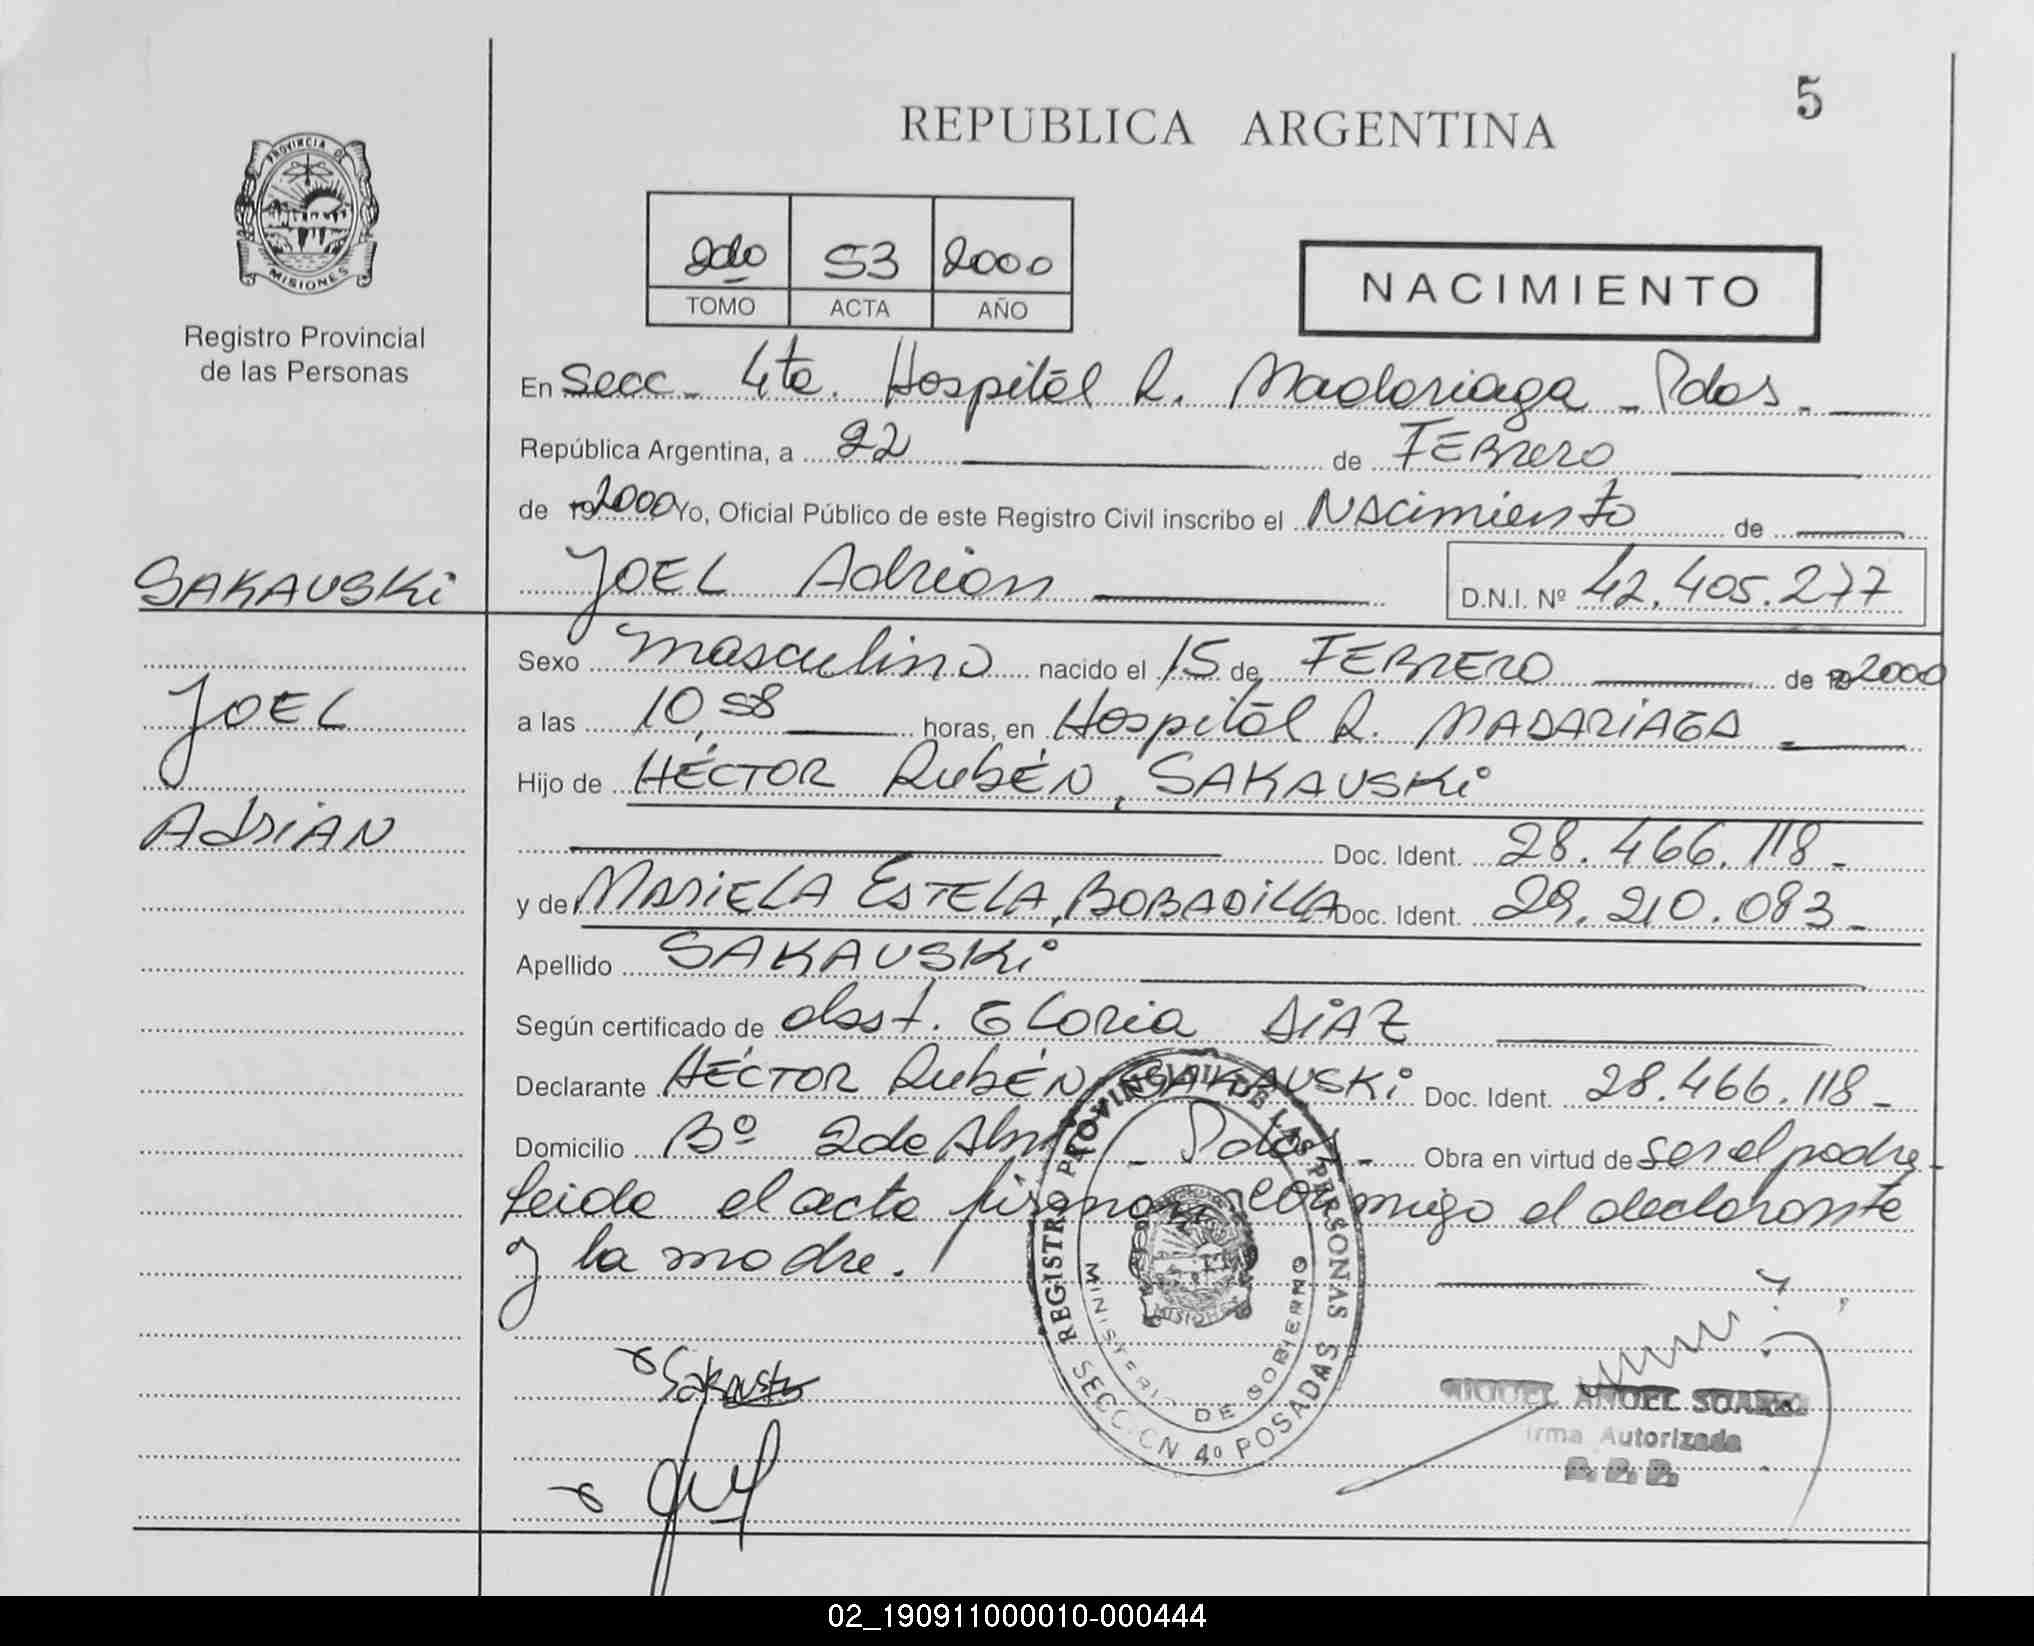 5
REPUBLICA ARGENTINA
PROVINCIA DE
MISIONES
Registro Provincial
de las Personas
2do 53 2000
TOMO ACTA AÑO
NACIMIENTO
En Secc. 4ta. Hospitāl R. Madariaga - Pdas. -
República Argentina, a 22 de FEBrero
de 19 2000 Yo, Oficial Público de este Registro Civil inscribo el NAcimiento de
SAKAUSKi
JOEL Adrian D.N.I. Nº 42.405.277
Sexo masculino nacido el 15 de FEBRERO de 2000
JOEL
a las 10,58 horas, en Hospitāl R. MADARIAGA -
Hijo de HÉCTOR RubÉN, SAKAUSKi
AdriAN
Doc. Ident. 28.466.118 -
y de MARiELA ESTELA, BOBADiLLA Doc. Ident. 29.210.083 -
Apellido SAKAUSKi
Según certificado de obst. GLoria DiAZ
Declarante HÉCTOR RubÉN, SAKAUSKi Doc. Ident. 28.466.118 -
Domicilio Bº 2 de Abril - Pdas. - Obra en virtud de ser el padre -
Leida el acta firman conmigo el declarante
y la madre.
REGISTRO PROVINCIAL DE LAS PERSONAS
MINISTERIO DE GOBIERNO
MISIONES
SECCION 4º POSADAS
Sakauski
MIGUEL ANGEL SUAREZ
Firma Autorizada
02_190911000010-000444